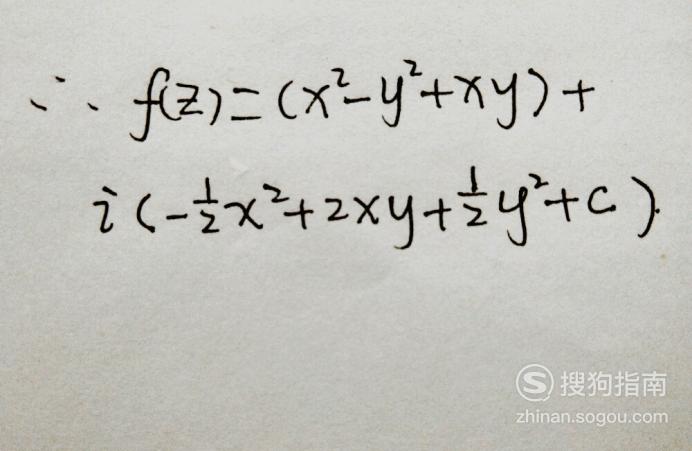 ∴ f(z)=(x²-y²+xy)+
i(-½x²+2xy+½y²+c).
S 搜狗指南
zhinan.sogou.com